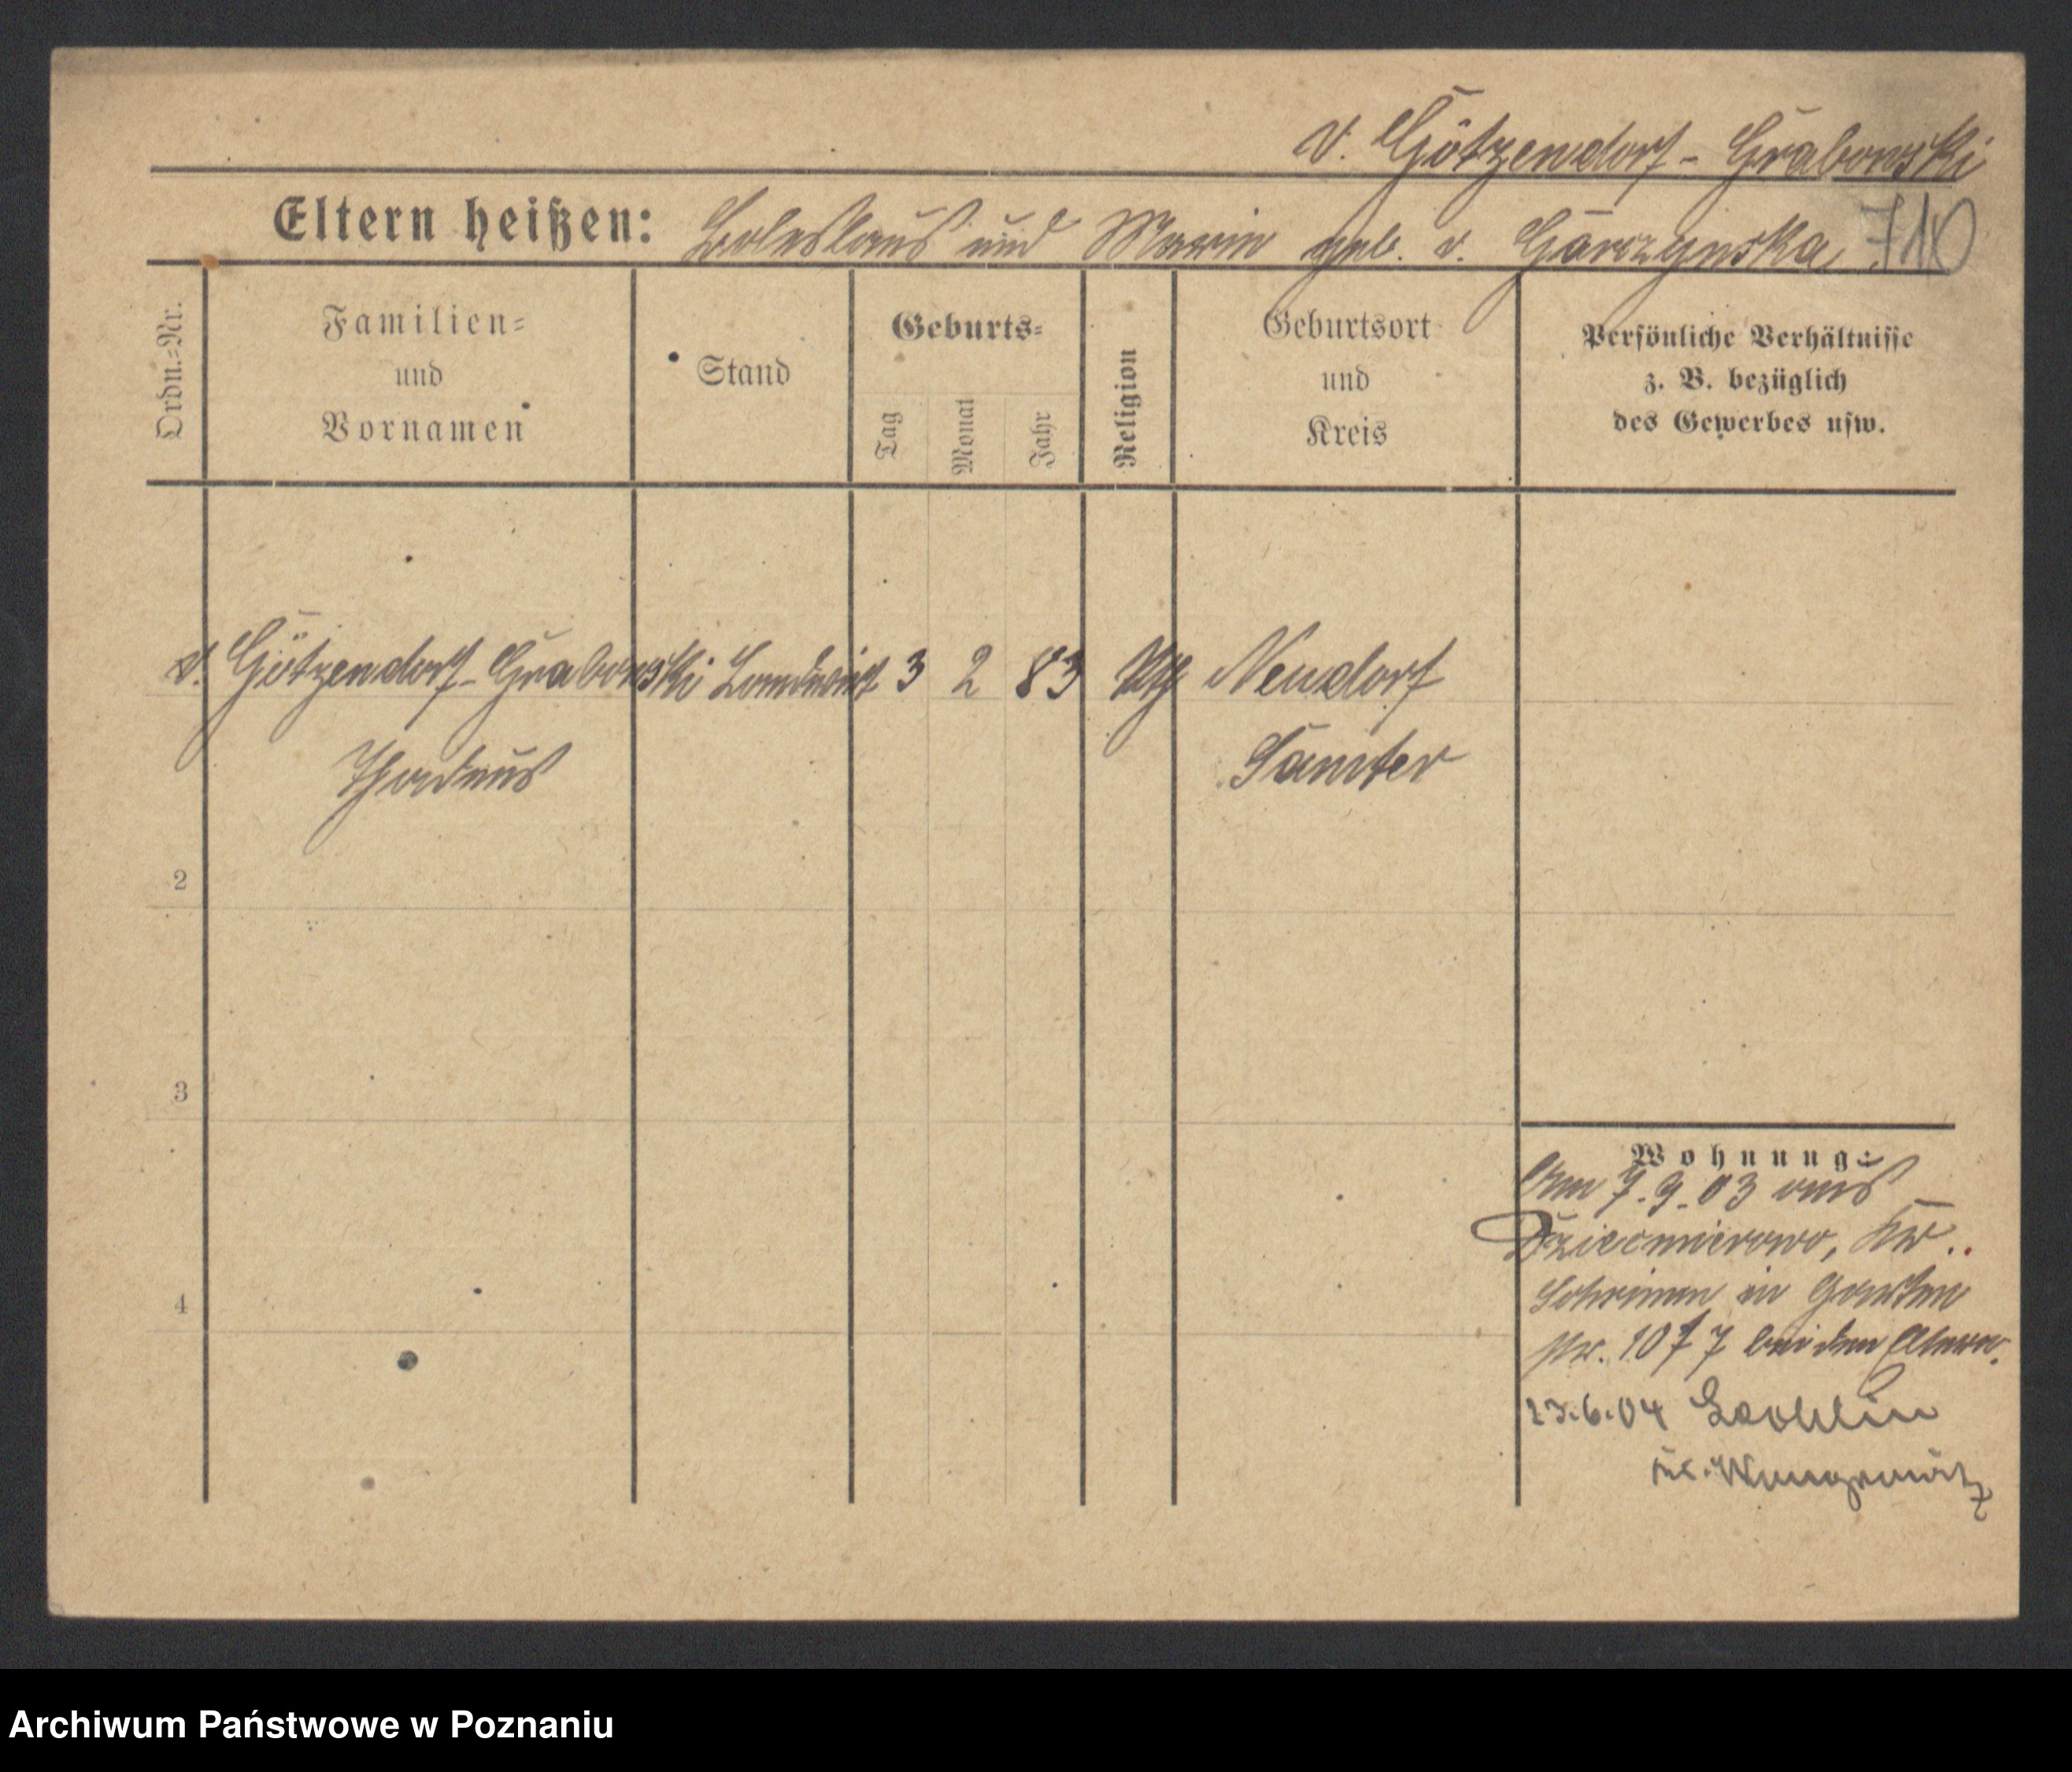 v. Götzendorf-Grabowski
Eltern heißen: Boleslaus und Maria geb. v. Garczynska
710
Ordn.-Nr.
Familien-
und
Vornamen
Stand
Geburts-
Tag
Monat
Jahr
Religion
Geburtsort
und
Kreis
Persönliche Verhältnisse
z. B. bezüglich
des Gewerbes usw.
v. Götzendorf-Grabowski Landwirt 3 2 83 Neudorf
Thadeus Samter
2
3
4
Wohnung:
Am 7.9.03 aus
Dziecmierowo, Kr.
Schrimm in Garten
Nr. 1077 bei den Eltern.
23.6.04
Kr. Wongrowitz
Archiwum Państwowe w Poznaniu